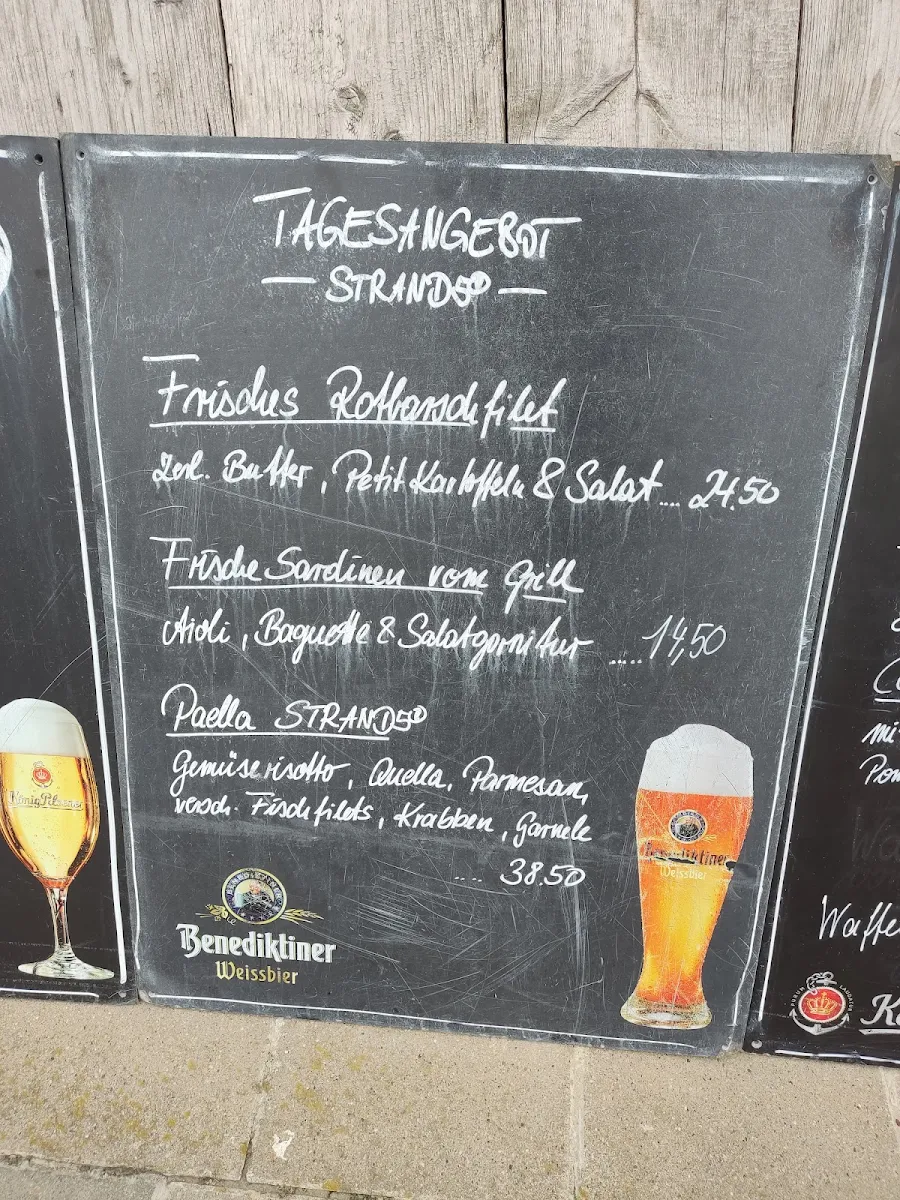 TAGESANGEBOT
— STRAND5⁰ —
Frisches Rotbarschfilet
zerl. Butter, Petit Kartoffeln & Salat .... 24.50
Frische Sardinen vom Grill
Aioli, Baguette & Salatgarnitur ..... 14,50
Paella STRAND5⁰
Gemüserisotto, Quella, Parmesan,
versch. Fischfilets, Krabben, Garnele
.... 38.50
Benediktiner
Weissbier
Benediktiner
Weissbier
König Pilsener
mi
Waffe